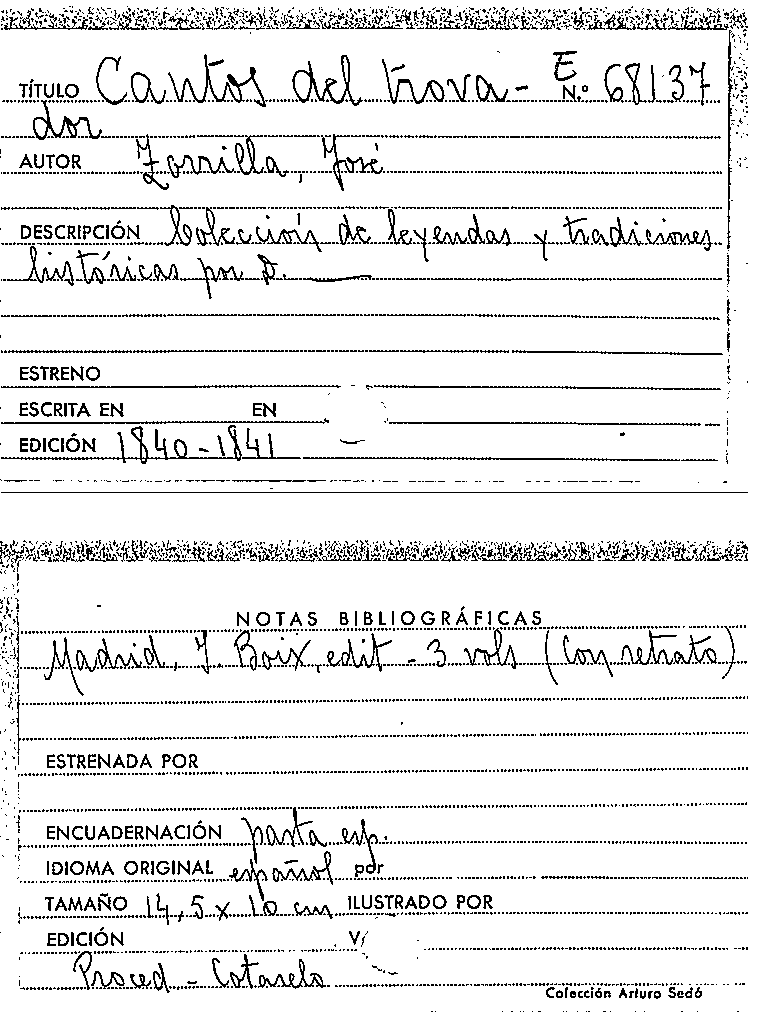 TÍTULO Cantos del trova- E N.º 68137
dor
AUTOR Zorrilla, José
DESCRIPCIÓN Colección de leyendas y tradiciones
históricas por D. ——
ESTRENO
ESCRITA EN EN
EDICIÓN 1840-1841
NOTAS BIBLIOGRÁFICAS
Madrid, J. Boix, edit - 3 vols (Con retrato)
ESTRENADA POR
ENCUADERNACIÓN pasta esp.
IDIOMA ORIGINAL español por
TAMAÑO 14,5 x 10 cm ILUSTRADO POR
EDICIÓN V/
Proced - Cotarelo
Colección Arturo Sedó